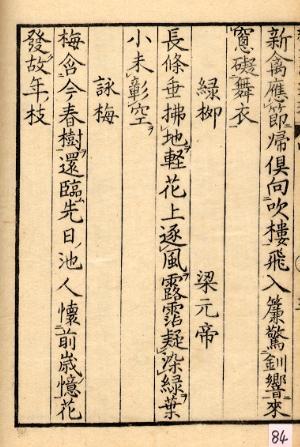 新禽應節帰俱向吹樓飛入簾驚釧響來
窓礙舞衣
緑栁　梁元帝
長條垂拂地輕花上逐風露霑疑染緑葉
小未彰空
詠梅
梅含今春樹還臨先日池人懷前歳憶花
發故年枝
84